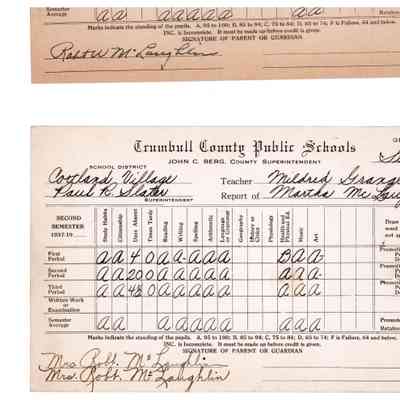 Semester
Average a a a a a a a a a
Marks indicate the standing of the pupils. A, 95 to 100; B, 85 to 94; C, 75 to 84; D, 65 to 74; F is Failure, 64 and below.
INC. is Incomplete. It must be made up before credit is given.
SIGNATURE OF PARENT OR GUARDIAN
Robt W McLaughlin
Trumbull County Public Schools
JOHN C. BERG, COUNTY SUPERINTENDENT
SCHOOL DISTRICT
Cortland Village Teacher Mildred
Paul R. Slater Report of Martha Mc
SUPERINTENDENT
SECOND SEMESTER 1937-19 Study Habits Citizenship Days Absent Times Tardy Reading Writing Spelling Arithmetic Language or Grammar Geography History or Civics Physiology Health and Physical Ed. Music Art
First Period a a 4 0 a a a a a B a a
Second Period a a 20 0 a a a a a a a a
Third Period a a 4½ 0 a a a a a a a a
Written Work or Examination
Semester Average a a a a a a a a a a
Marks indicate the standing of the pupils. A, 95 to 100; B, 85 to 94; C, 75 to 84; D, 65 to 74; F is Failure, 64 and below.
INC. is Incomplete. It must be made up before credit is given.
SIGNATURE OF PARENT OR GUARDIAN
Mrs Robt. McLaughlin
Mrs. Robt. McLaughlin